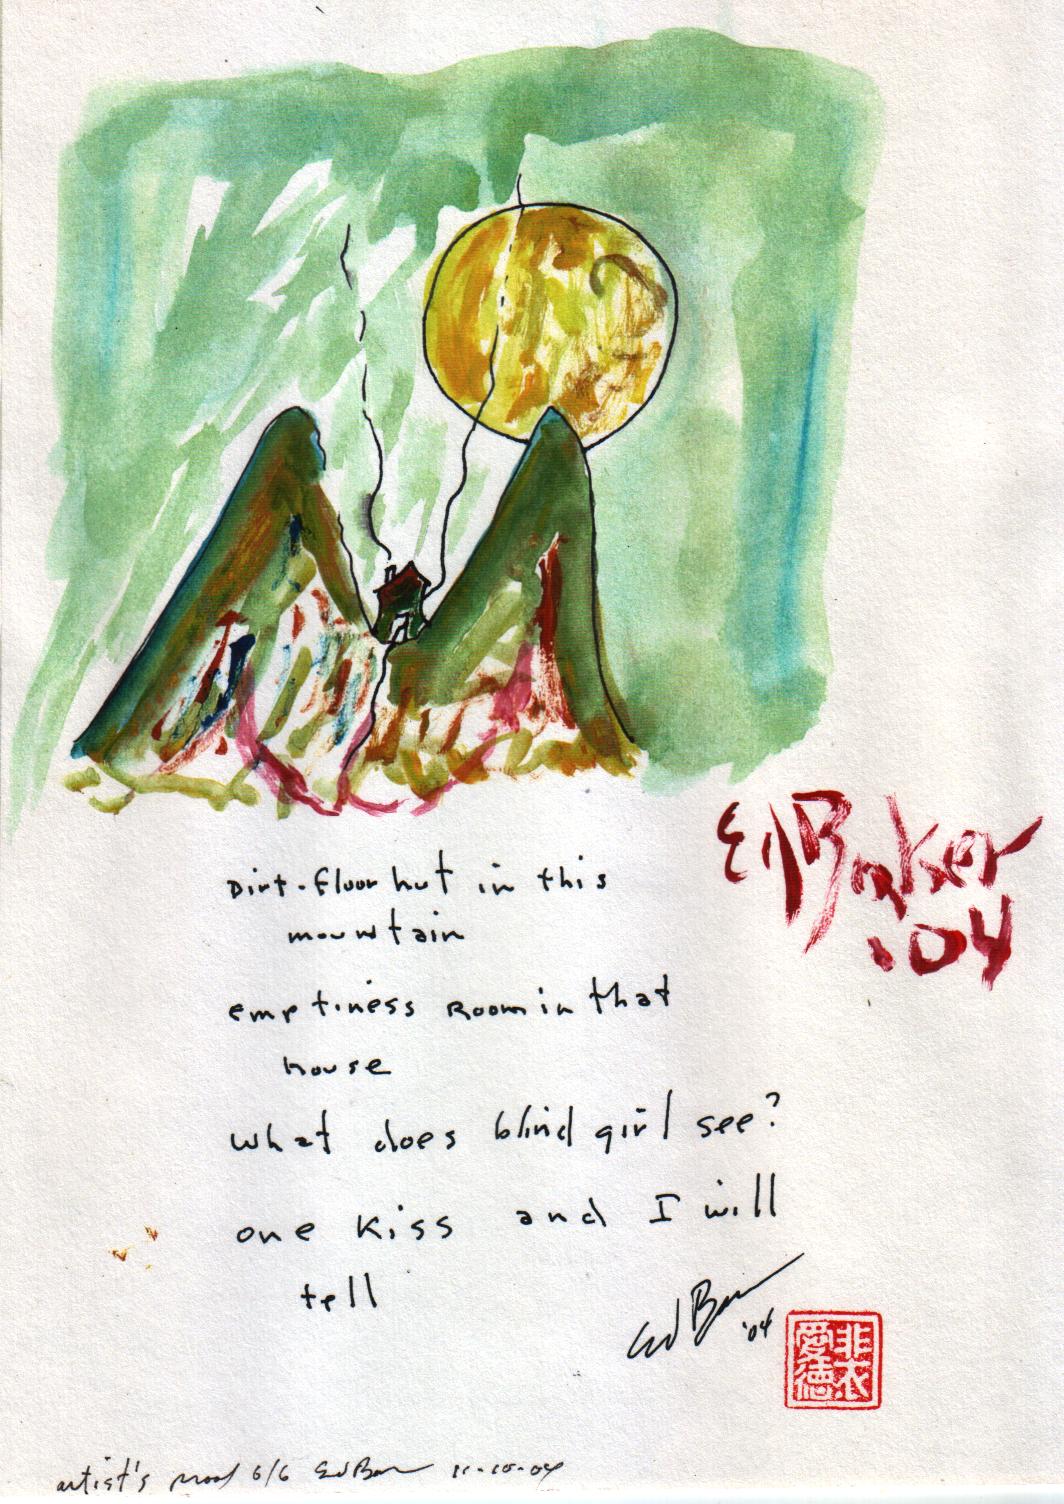 Ed Baker
'04
Dirt-floor hut in this
mountain
emptiness Room in that
house
what does blind girl see?
one kiss and I will
tell
Ed Baker
'04
愛 非
德 衣
artist's proof 6/6 Ed Baker 11-10-04